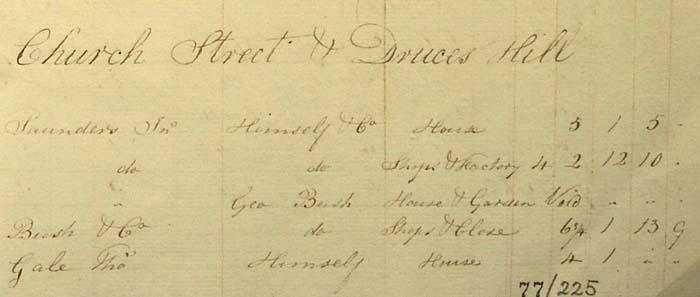 Church Street & Druces Hill
Saunders Jno Himself & Co House 5 1 5 "
do do Shops & Factory 4 2 12 10 "
" Geo Bush House & Garden Void " " "
Bush & Co do Shops & Close 6¾ 1 13 9
Gale Thos Himself House 4 1 " "
77/225